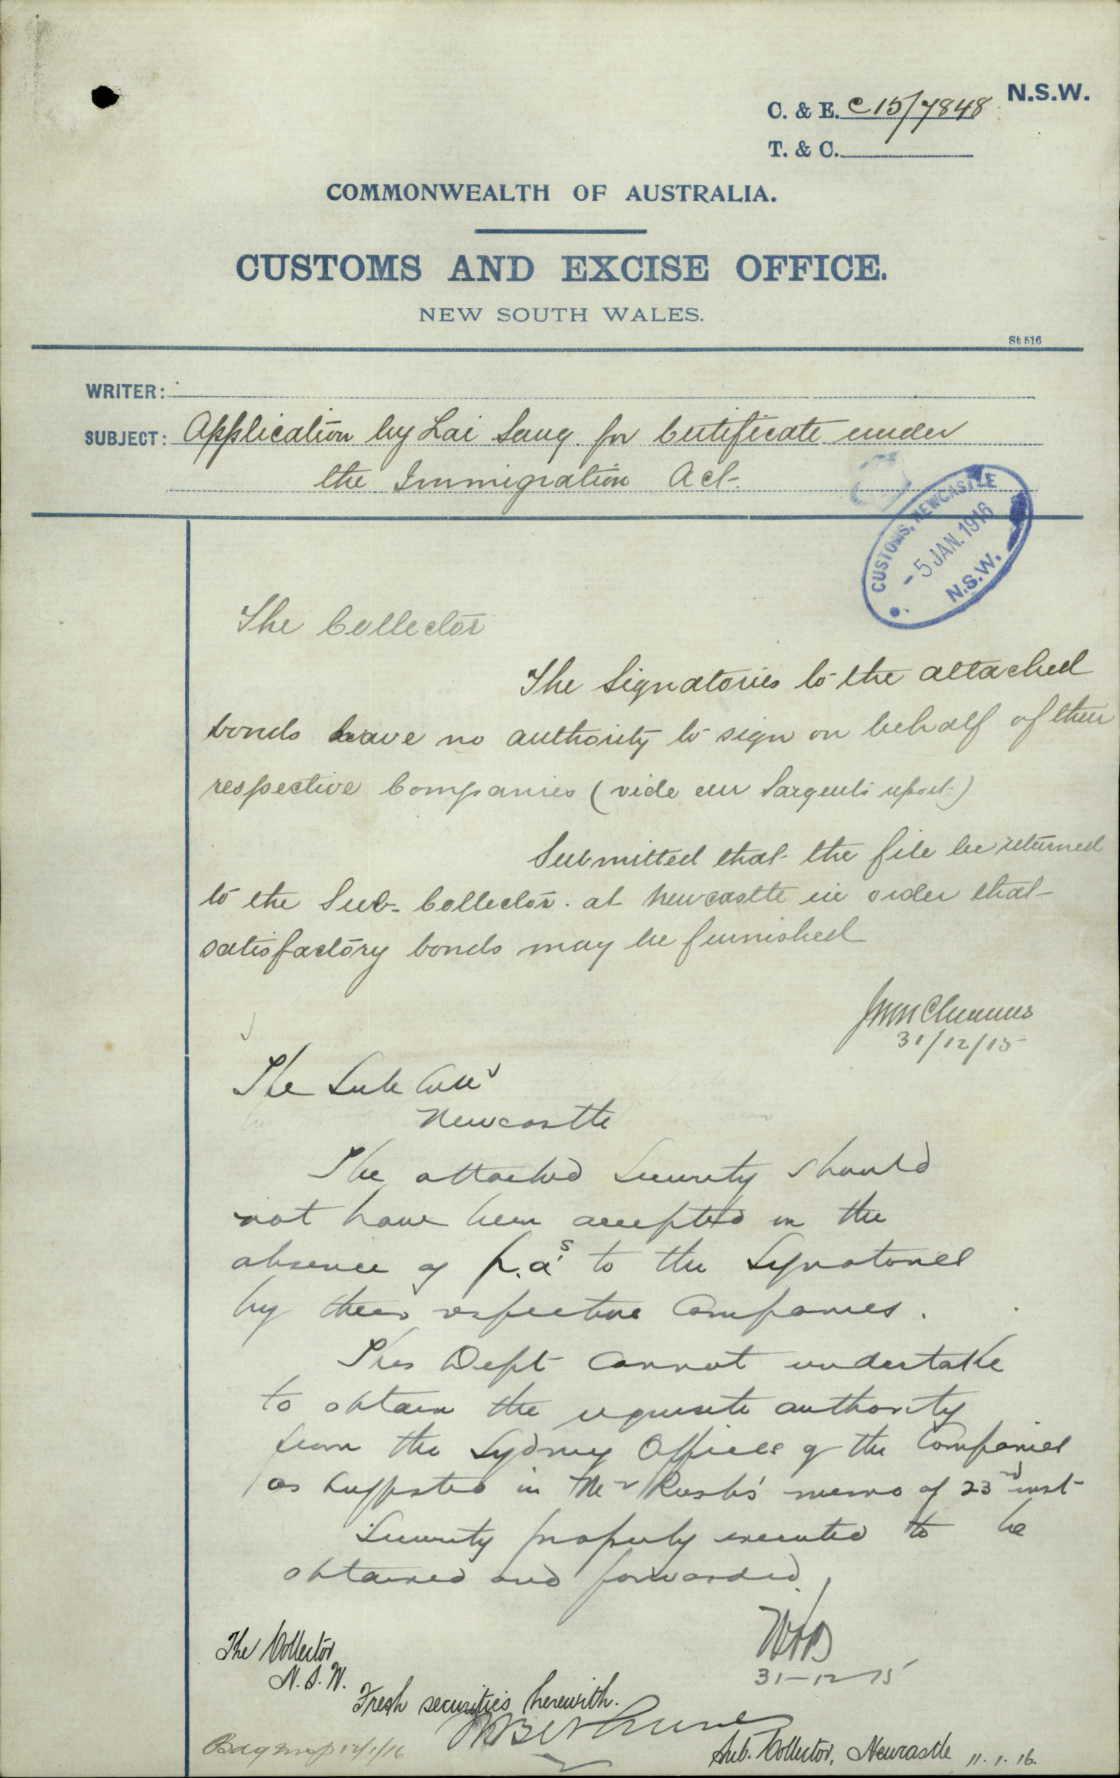 N.S.W.
C. & E. C15/7848
T. & C.
COMMONWEALTH OF AUSTRALIA.
CUSTOMS AND EXCISE OFFICE.
NEW SOUTH WALES.
St 516
WRITER:
SUBJECT: Application by Lai Sang. for Certificate under
the Immigration Act.
CUSTOMS, NEWCASTLE
- 5 JAN. 1916
N.S.W.
The Collector
The Signatories to the attached
bonds have no authority to sign on behalf of their
respective Companies (vide Sargent's report)
Submitted that the file be returned
to the Sub-Collector. at Newcastle in order that
satisfactory bonds may be furnished
31/12/15
The Sub Collr
Newcastle
The attached Security should
not have been accepted in the
absence of p.a's to the Signatories
by their respective Companies.
This Dept cannot undertake
to obtain the requisite authority
from the Sydney Offices of the Companies
as suggested in Mr Rush's memo of 23rd inst
Security properly executed to be
obtained and forwarded.
31-12-15
The Collector
N.S.W.
Fresh securities herewith.
Sub. Collector, Newcastle 11.1.16.
12/1/16